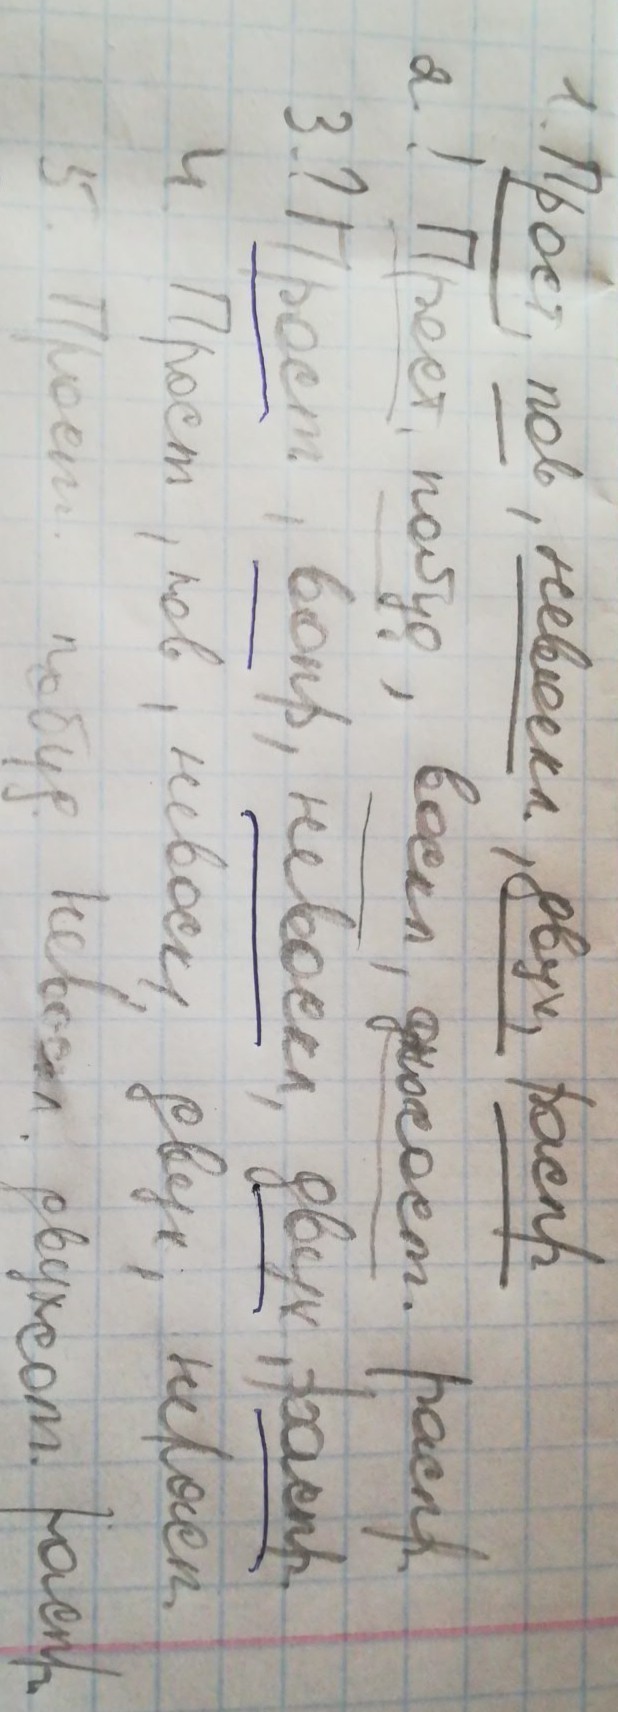 1. Прост, пов, невоскл, двух, распр
2. ! Прост, побуд, воскл, односост. распр
3. ? Прост, вопр, невоскл, двух, распр.
4. Прост, пов, невоскл, двух, нерасп.
5. Прост. побуд. невоскл. двухсот. распр.